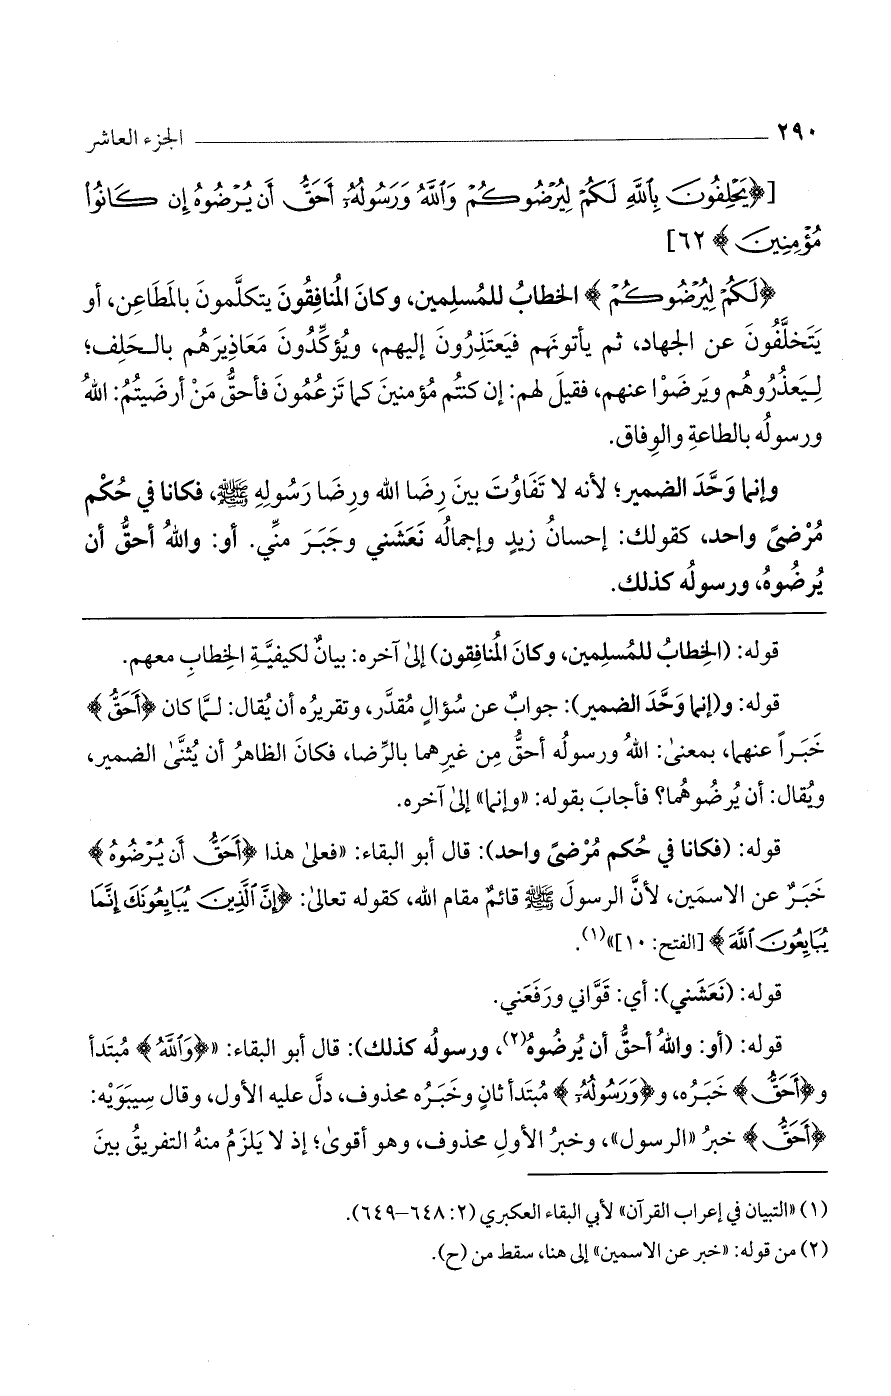 ٢٩٠ الجزء العاشر
[﴿يَحْلِفُونَ بِٱللَّهِ لَكُمْ لِيُرْضُوكُمْ وَٱللَّهُ وَرَسُولُهُۥٓ أَحَقُّ أَن يُرْضُوهُ إِن كَانُوا۟
مُؤْمِنِينَ﴾ ٦٢]
﴿لَكُمْ لِيُرْضُوكُمْ﴾ الخطابُ للمُسلِمين، وكانَ المُنافِقُونَ يتكلَّمونَ بالمَطَاعِن، أو
يَتَخلَّفُونَ عن الجهاد، ثم يأتونَهم فيَعتَذِرُونَ إليهم، ويُؤكِّدُونَ مَعَاذِيرَهُم بالـحَلِف؛
لِـيَعذُرُوهُم ويَرضَوْا عنهم، فقيلَ لهم: إن كنتُم مُؤمنينَ كما تَزعُمُونَ فأحقُّ مَنْ أرضَيتُمُ: اللهُ
ورسولُه بالطاعةِ والوِفاق.
وإنما وَحَّدَ الضمير؛ لأنه لا تَفَاوُتَ بينَ رِضَا الله ورِضَا رَسُولِهِ ﷺ، فكانا في حُكْم
مُرْضىً واحد، كقولك: إحسانُ زيدٍ وإجمالُه نَعَشَني وجَبَرَ منِّي. أو: واللهُ أحقُّ أن
يُرضُوهُ، ورسولُه كذلك.
قوله: (الخِطابُ للمُسلِمين، وكانَ المُنافِقون) إلىٰ آخره: بيانٌ لكيفيَّةِ الخِطابِ معهم.
قوله: و(إنما وَحَّدَ الضمير): جوابٌ عن سُؤالٍ مُقدَّر، وتقريرُه أن يُقال: لـمَّا كان ﴿أَحَقُّ﴾
خَبَراً عنهما، بمعنىٰ: اللهُ ورسولُه أحقُّ مِن غيرِهما بالرِّضا، فكانَ الظاهرُ أن يُثنَّىٰ الضمير،
ويُقال: أن يُرضُوهُما؟ فأجابَ بقوله: «وإنما» إلىٰ آخره.
قوله: (فكانا في حُكم مُرْضىً واحد): قال أبو البقاء: «فعلىٰ هذا ﴿أَحَقُّ أَن يُرْضُوهُ﴾
خَبَرٌ عن الاسمَين، لأنَّ الرسولَ ﷺ قائمٌ مقام الله، كقوله تعالىٰ: ﴿إِنَّ ٱلَّذِينَ يُبَايِعُونَكَ إِنَّمَا
يُبَايِعُونَ ٱللَّهَ﴾ [الفتح: ١٠]»(١).
قوله: (نَعَشَني): أي: قَوَّاني ورَفَعَني.
قوله: (أو: واللهُ أحقُّ أن يُرضُوهُ(٢)، ورسولُه كذلك): قال أبو البقاء: «﴿وَٱللَّهُ﴾ مُبتَدأ
و﴿أَحَقُّ﴾ خَبَرُه، و﴿وَرَسُولُهُۥٓ﴾ مُبتَدأ ثانٍ وخَبَرُه محذوف، دلَّ عليه الأول، وقال سِيبَوَيْه:
﴿أَحَقُّ﴾ خبرُ «الرسول»، وخبرُ الأولِ محذوف، وهو أقوىٰ؛ إذ لا يَلزَمُ منهُ التفريقُ بينَ
(١) «التبيان في إعراب القرآن» لأبي البقاء العكبري (٢: ٦٤٨–٦٤٩).
(٢) من قوله: «خبر عن الاسمين» إلى هنا، سقط من (ح).